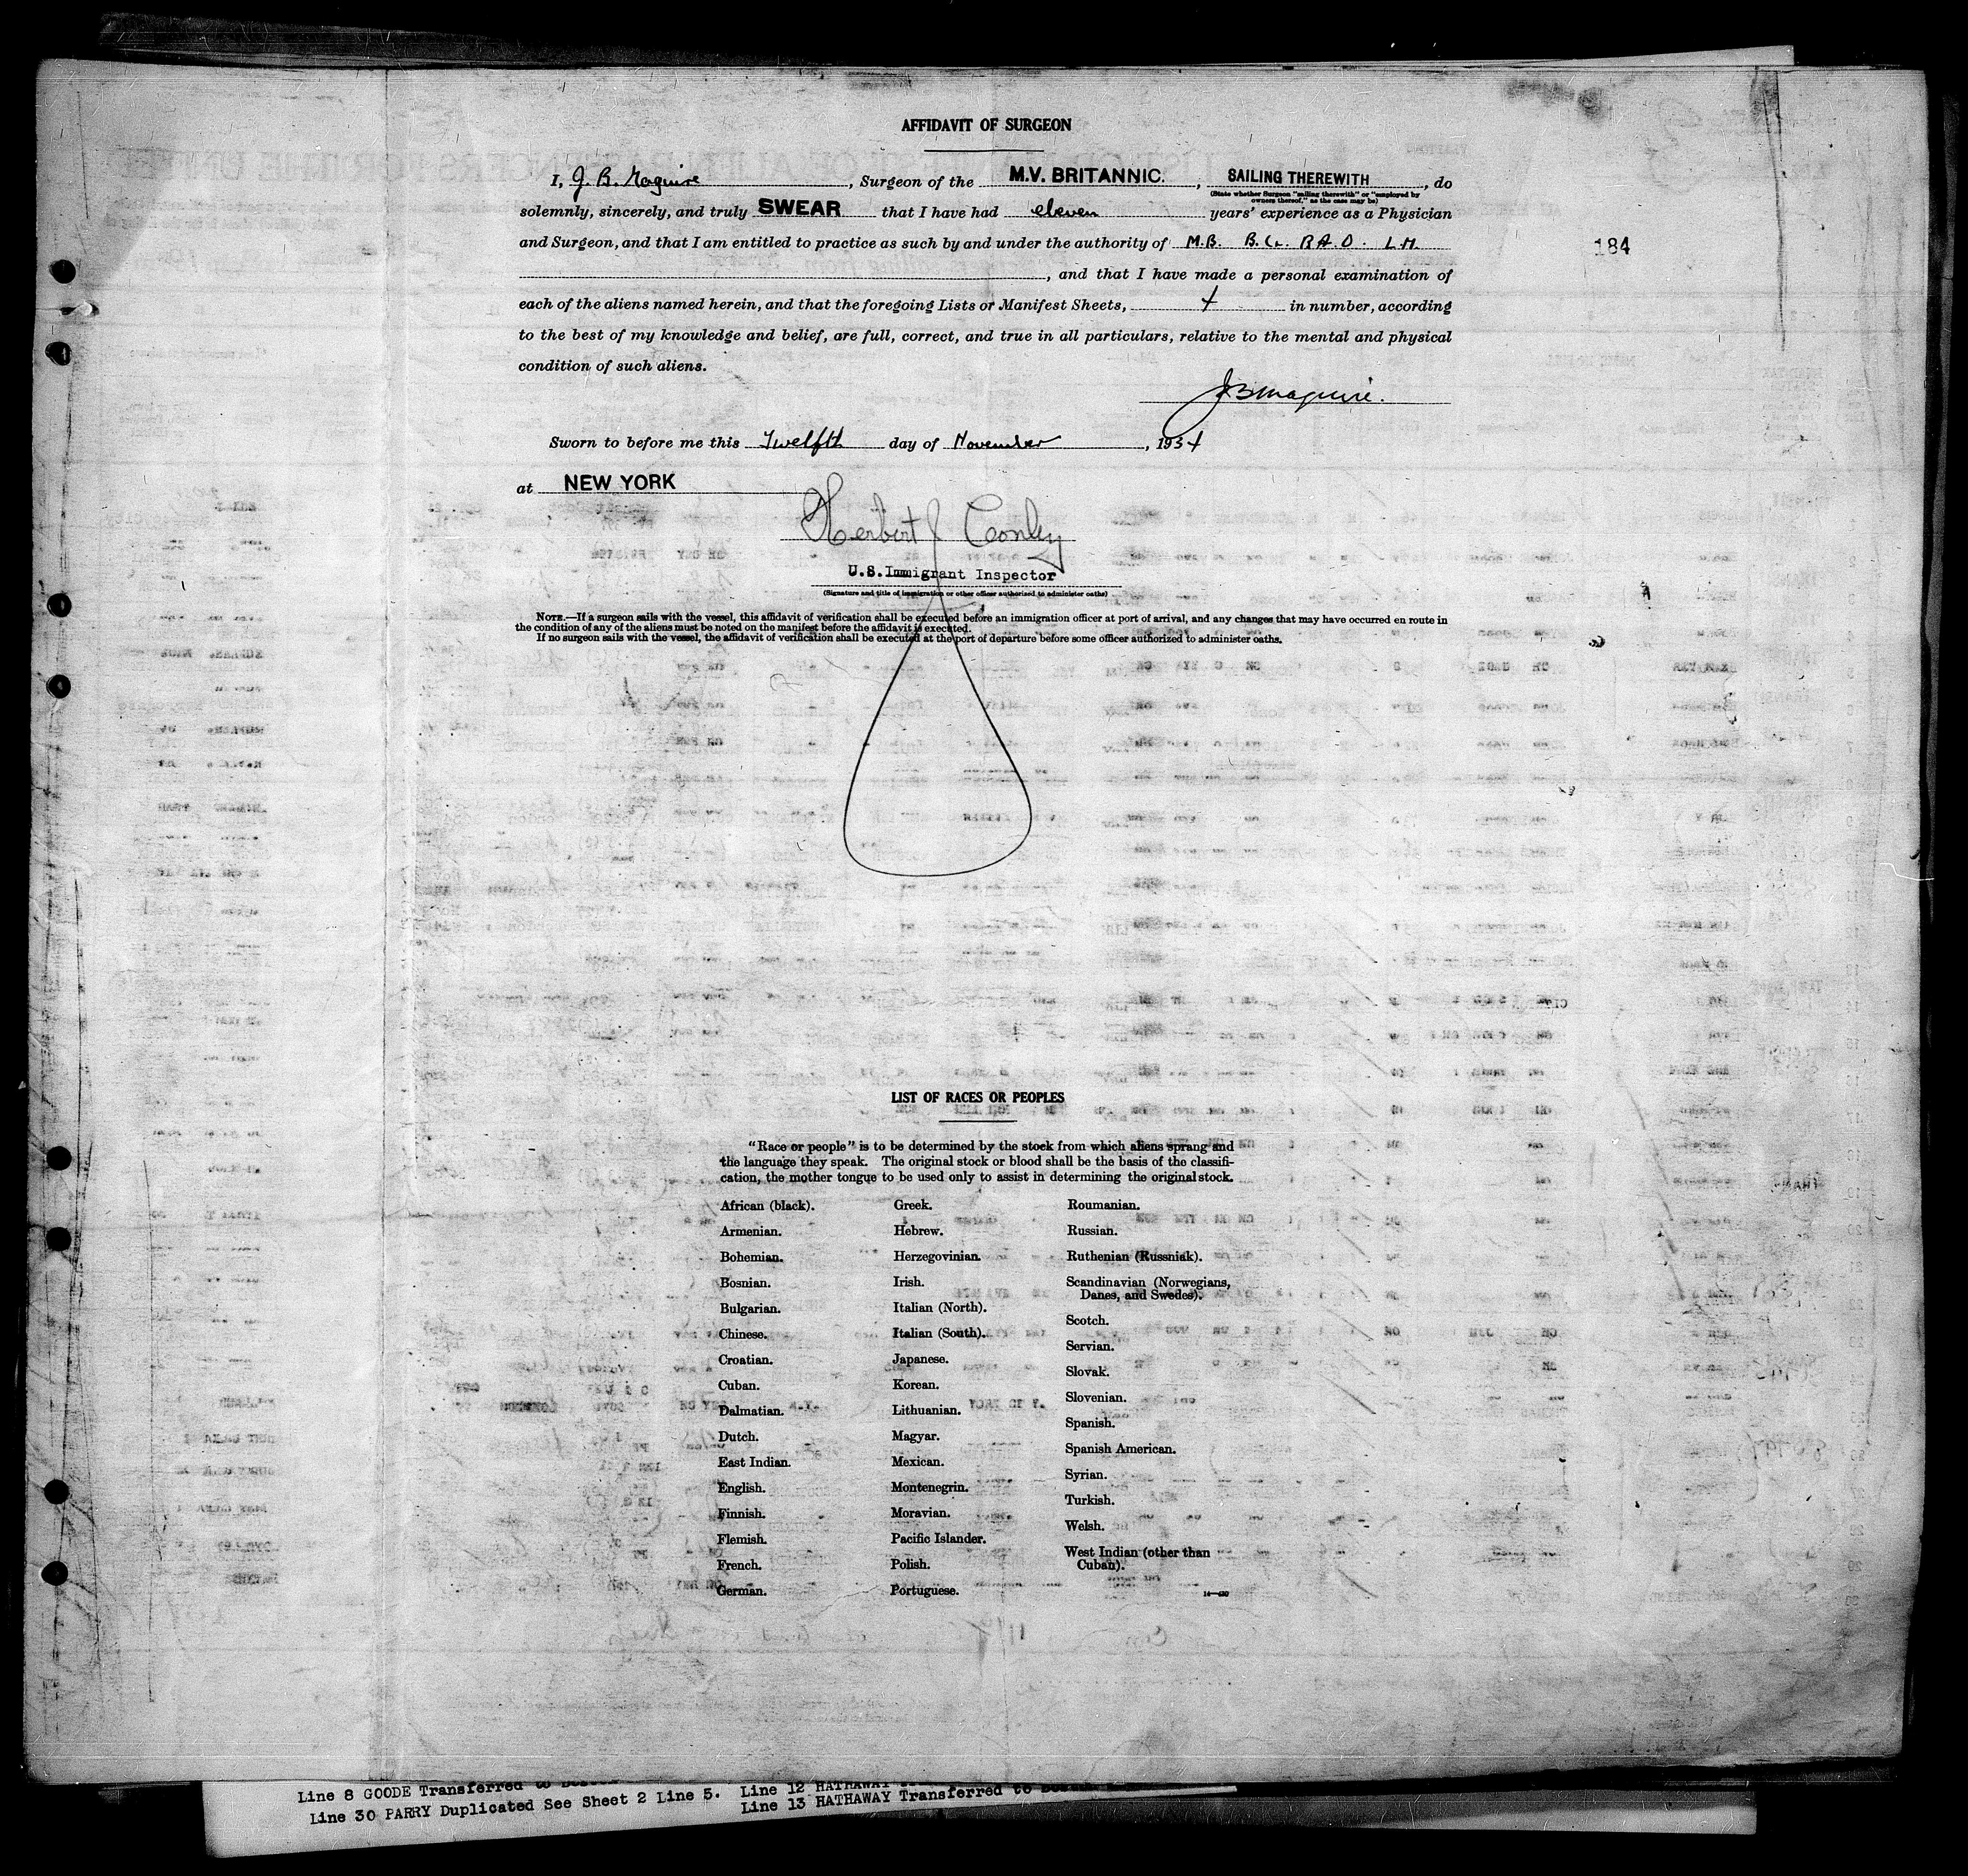 AFFIDAVIT OF SURGEON
I, J. B. Maguire, Surgeon of the M.V. BRITANNIC., SAILING THEREWITH, do
(State whether Surgeon "sailing therewith" or "employed by
owners thereof," as the case may be)
solemnly, sincerely, and truly SWEAR that I have had eleven years' experience as a Physician
and Surgeon, and that I am entitled to practice as such by and under the authority of M.B. B.Ch. B.A.O. L.M.
184
, and that I have made a personal examination of
each of the aliens named herein, and that the foregoing Lists or Manifest Sheets, 4 in number, according
to the best of my knowledge and belief, are full, correct, and true in all particulars, relative to the mental and physical
condition of such aliens.
J B Maguire.
Sworn to before me this Twelfth day of November, 1934
at NEW YORK
Herbert J Conley
U.S.Immigrant Inspector
(Signature and title of immigration or other officer authorized to administer oaths)
NOTE.—If a surgeon sails with the vessel, this affidavit of verification shall be executed before an immigration officer at port of arrival, and any changes that may have occurred en route in
the condition of any of the aliens must be noted on the manifest before the affidavit is executed.
If no surgeon sails with the vessel, the affidavit of verification shall be executed at the port of departure before some officer authorized to administer oaths.
LIST OF RACES OR PEOPLES
"Race or people" is to be determined by the stock from which aliens sprang and
the language they speak. The original stock or blood shall be the basis of the classifi-
cation, the mother tongue to be used only to assist in determining the original stock.
African (black).
Armenian.
Bohemian.
Bosnian.
Bulgarian.
Chinese.
Croatian.
Cuban.
Dalmatian.
Dutch.
East Indian.
English.
Finnish.
Flemish.
French.
German.
Greek.
Hebrew.
Herzegovinian.
Irish.
Italian (North).
Italian (South).
Japanese.
Korean.
Lithuanian.
Magyar.
Mexican.
Montenegrin.
Moravian.
Pacific Islander.
Polish.
Portuguese.
Roumanian.
Russian.
Ruthenian (Russniak).
Scandinavian (Norwegians,
Danes, and Swedes).
Scotch.
Servian.
Slovak.
Slovenian.
Spanish.
Spanish American.
Syrian.
Turkish.
Welsh.
West Indian (other than
Cuban).
Line 8 GOODE Transferred to
Line 30 PARRY Duplicated See Sheet 2 Line 5.
Line 12 HATHAWAY
Line 13 HATHAWAY Transferred to